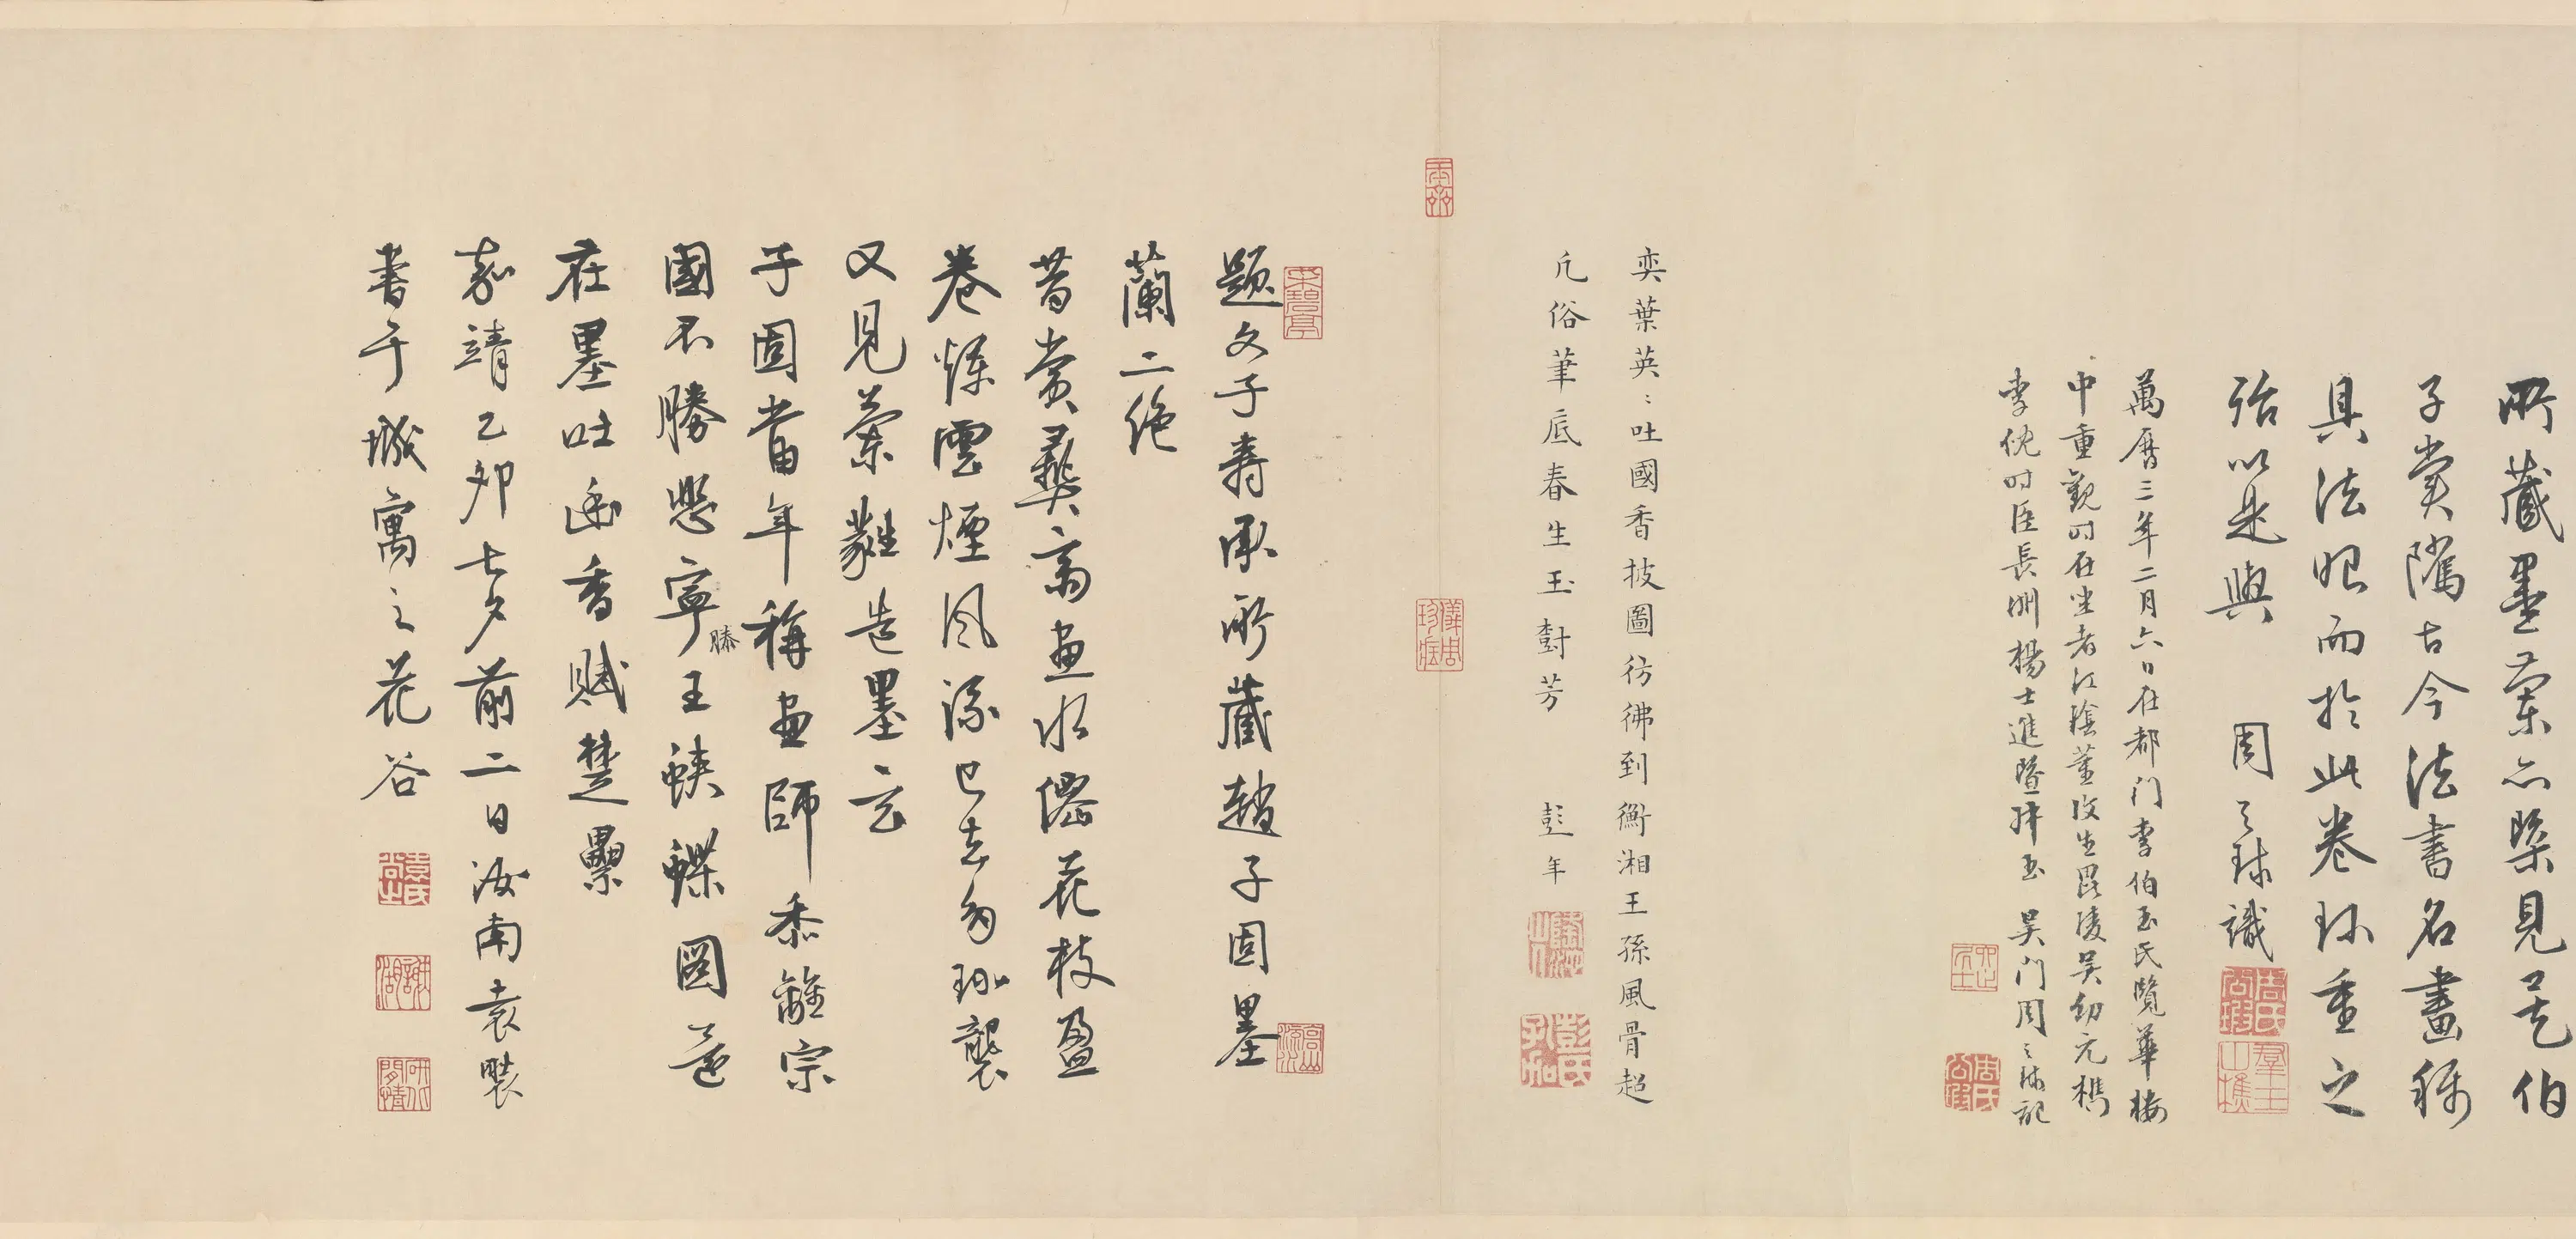 所藏墨蘭亦槩見是伯
子賞隲古今法書名畫稱
具法眼而於此卷珎重之
殆以是與 周之球識
萬曆三年二月六日在都门李伯玉氏覽華樓
中重觀时在坐者江陰董 生毘陵吴幼元 
李 时 長洲楊士進暨 玉 吴门周之球記
奕葉英〻吐國香披圖彷彿到衡湘王孫風骨超
凢俗筆底春生玉樹芳 彭年
題文子壽承所藏趙子固墨
蘭二絶
昔賞彝齋畫水僊花枝盈
卷爍雲煙風流已去多 襲
又見蘭 墨玄
子固當年稱畫師黍離宗
國不勝悲寧王蛺蝶圖 
滕
在墨吐幽香賦楚纍
嘉靖乙卯七夕前二日汝南袁褧
書于城寓之花谷